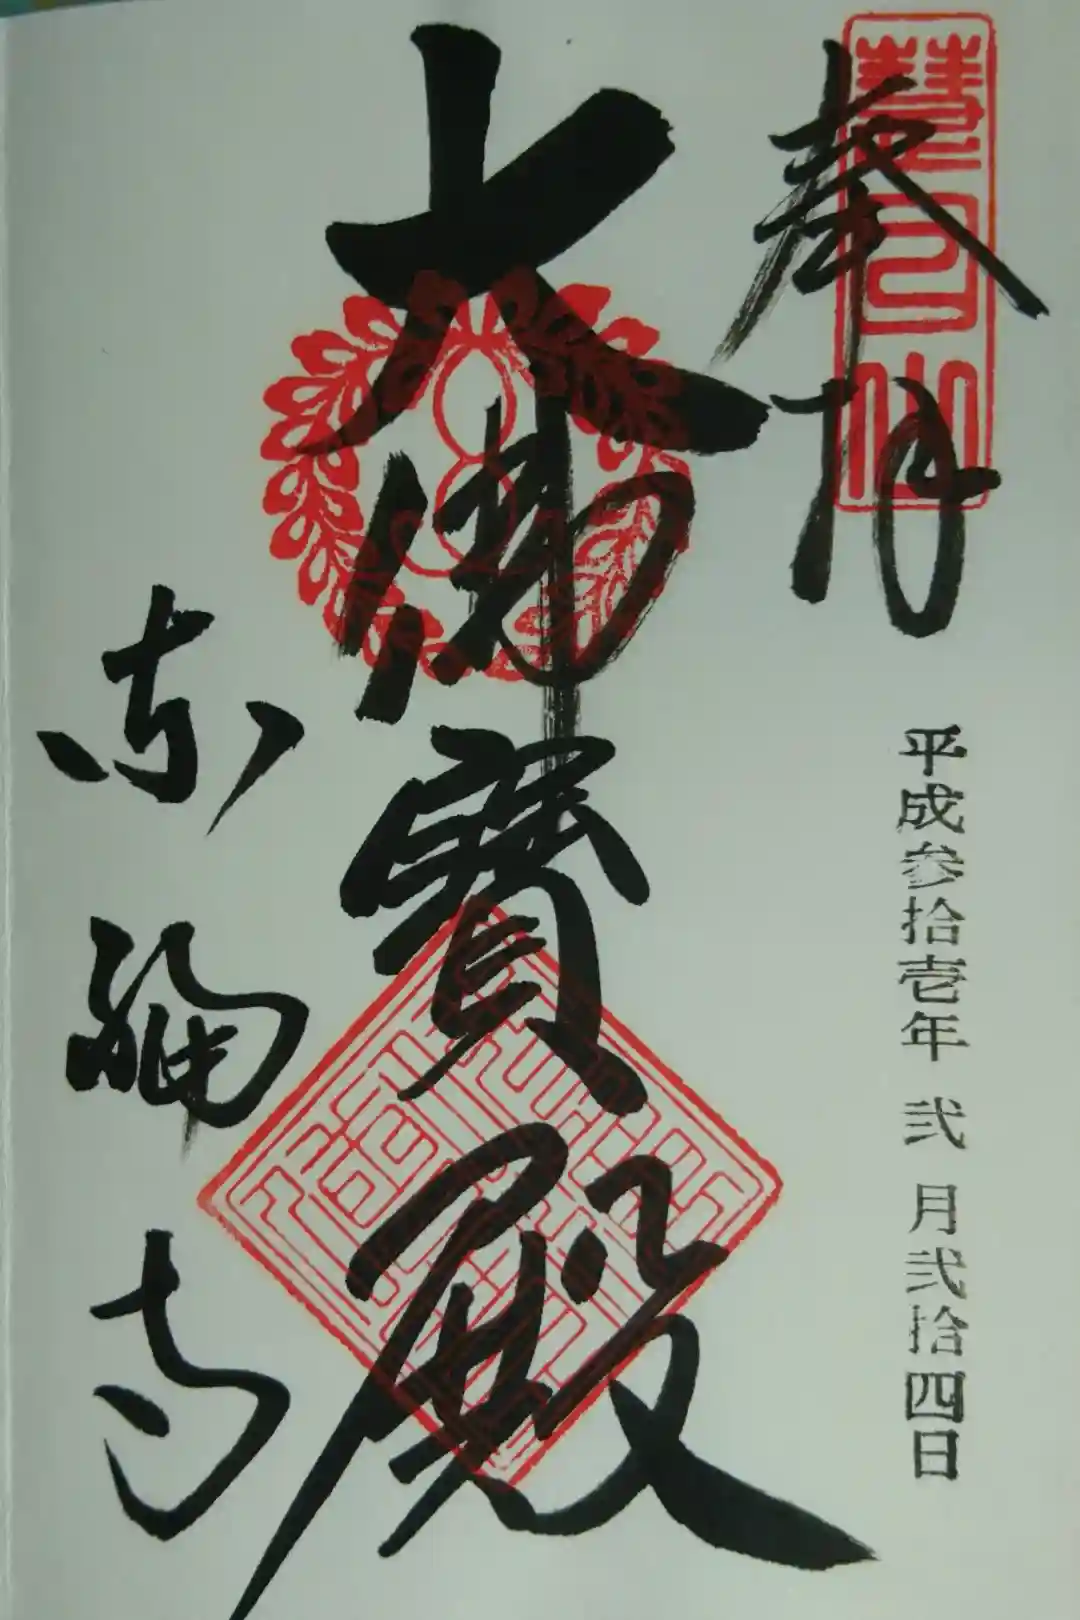 慧日山
奉拝
平成参拾壱年 弐月弐拾四日
大佛寶殿
東福寺